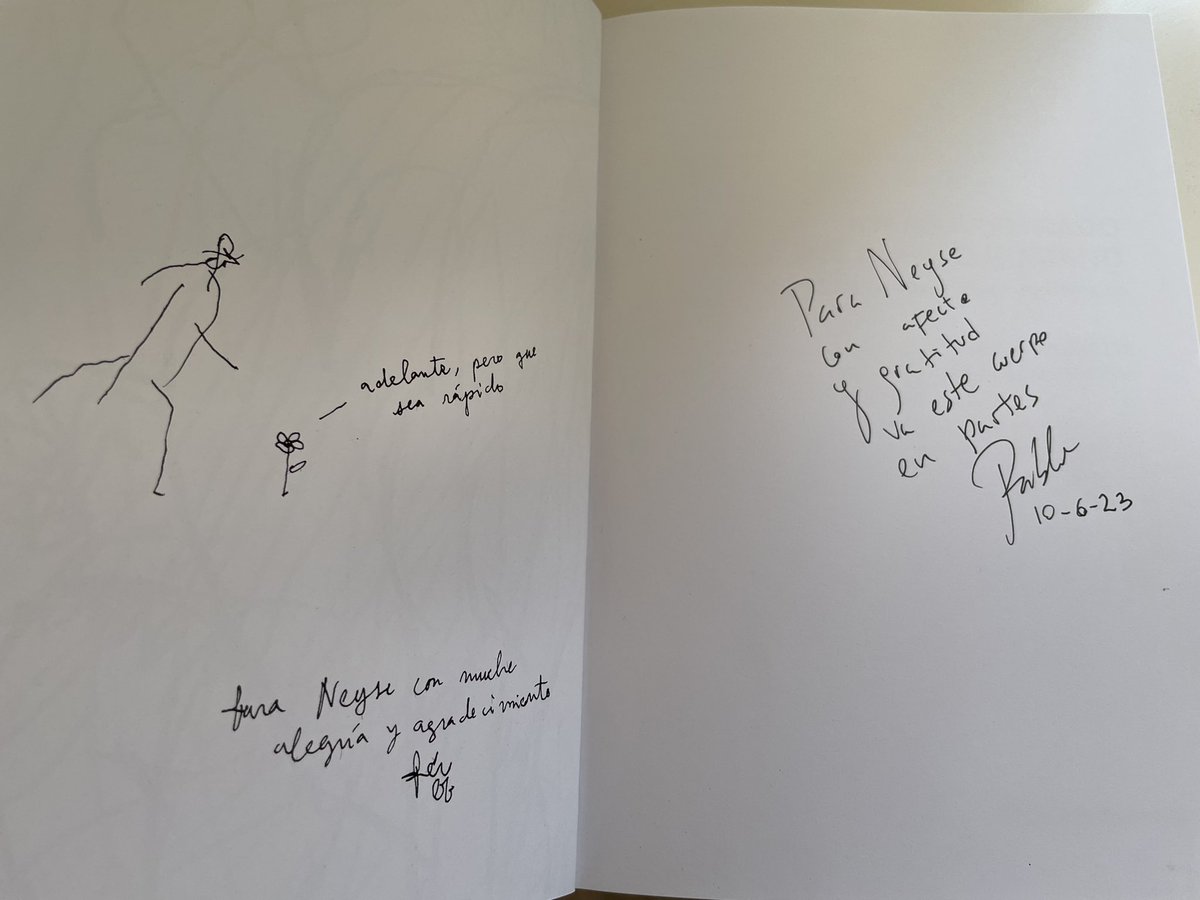 adelante, pero que
sea rápido
para Neyse con mucha
alegría y agradecimiento
Para Neyse
con afecto
y gratitud
va este cuerpo
en partes
Pablo
10-6-23